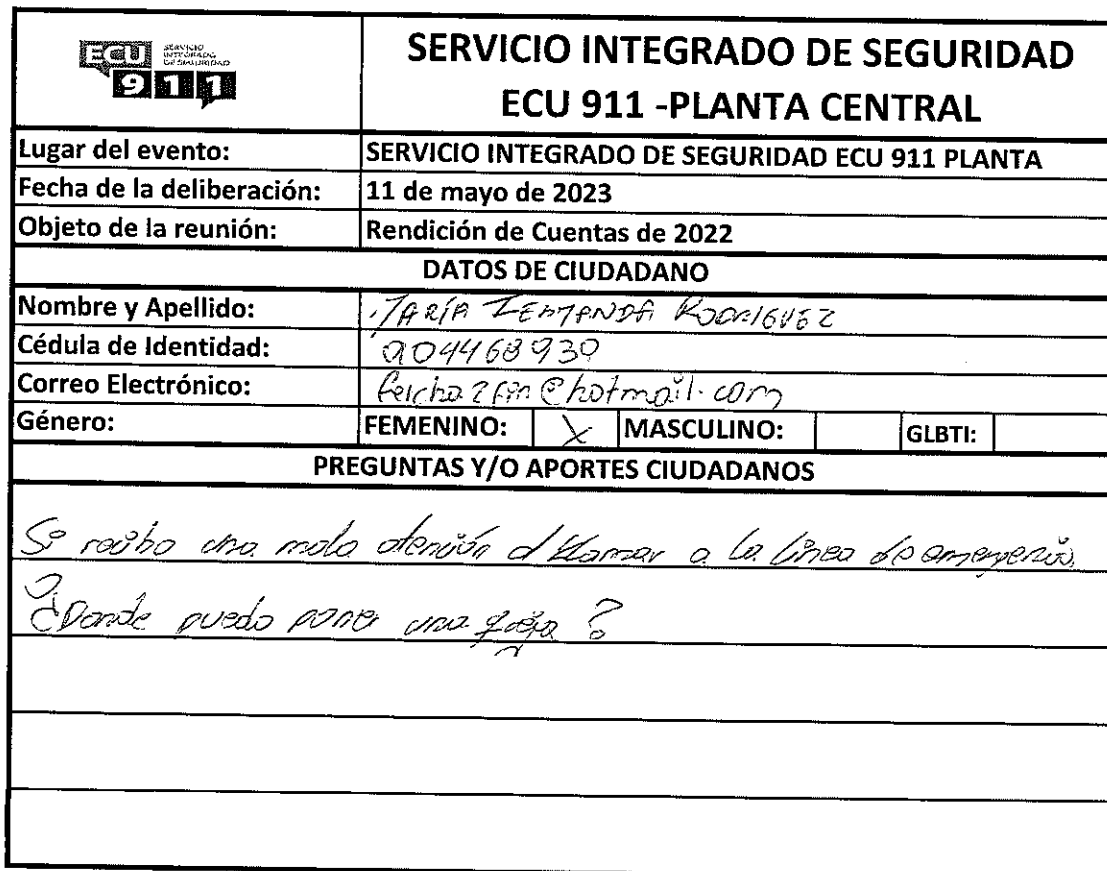 ECU SERVICIO INTEGRADO DE SEGURIDAD
911
SERVICIO INTEGRADO DE SEGURIDAD
ECU 911 -PLANTA CENTRAL
Lugar del evento: SERVICIO INTEGRADO DE SEGURIDAD ECU 911 PLANTA
Fecha de la deliberación: 11 de mayo de 2023
Objeto de la reunión: Rendición de Cuentas de 2022
DATOS DE CIUDADANO
Nombre y Apellido: MARÍA FERNANDA RODRIGUEZ
Cédula de Identidad: 904468930
Correo Electrónico: @hotmail.com
Género: FEMENINO: X MASCULINO: GLBTI:
PREGUNTAS Y/O APORTES CIUDADANOS
Si recibo una mala atención al llamar a la línea de emergencia
¿Donde puedo poner una queja?